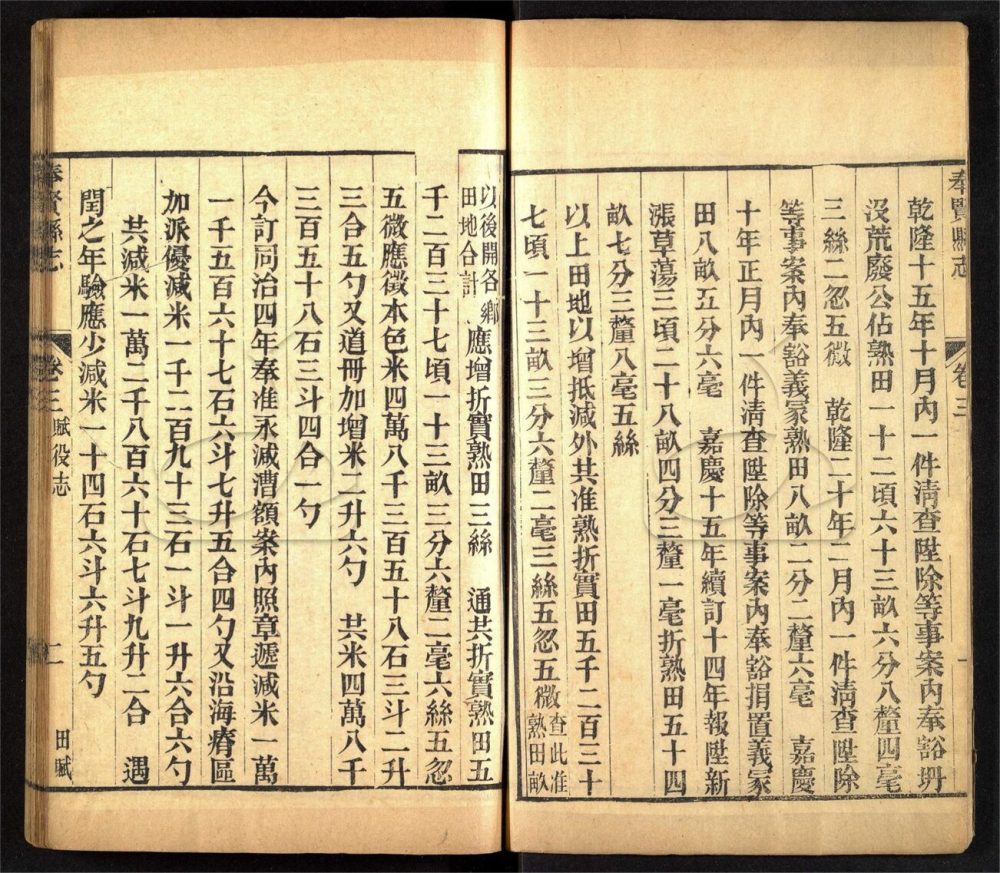 奉賢縣志
卷三
一
乾隆十五年十月內一件清查陞除等事案內奉豁坍
沒荒廢公佔熟田一十二頃六十三畝六分八釐四毫
三絲二忽五微　乾隆二十年二月內一件清查陞除
等事案內奉豁義冢熟田八畝二分二釐六毫　嘉慶
十年正月內一件清查陞除等事案內奉豁捐置義冢
田八畝五分六毫　嘉慶十五年續訂十四年報陞新
漲草蕩三頃二十八畝四分三釐一毫折熟田五十四
畝七分三釐八毫五絲
以上田地以增抵減外共准熟折實田五千二百三十
七頃一十三畝三分六釐二毫三絲五忽五微查此准
熟田畝
以後開各鄉
田地合計應增折實熟田三絲　通共折實熟田五
千二百三十七頃一十三畝三分六釐二毫六絲五忽
五微應徵本色米四萬八千三百五十八石三斗二升
三合五勺又道冊加增米二升六勺　共米四萬八千
三百五十八石三斗四合一勺
今訂同治四年奉准永減漕額案內照章遞減米一萬
一千五百六十七石六斗七升五合四勺又沿海瘠區
加派優減米一千二百九十三石一斗一升六合六勺
共減米一萬二千八百六十石七斗九升二合　遇
閏之年驗應少減米一十四石六斗六升五勺
奉賢縣志
卷三
賦役志
二
田賦